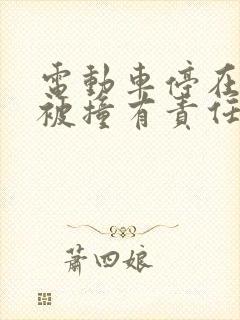 電動車停在
被撞有責任
蕭四娘